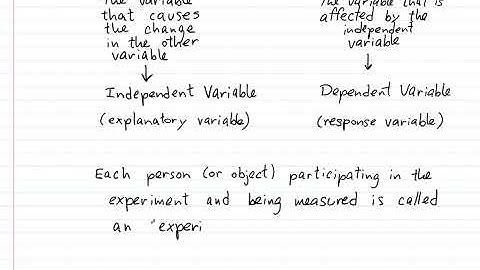 The variable
that causes
the change
in the other
variable
Independent Variable
(explanatory variable)
The variable that is
affected by the
independent
variable
Dependent Variable
(response variable)
Each person (or object) participating in the
experiment and being measured is called
an "experi